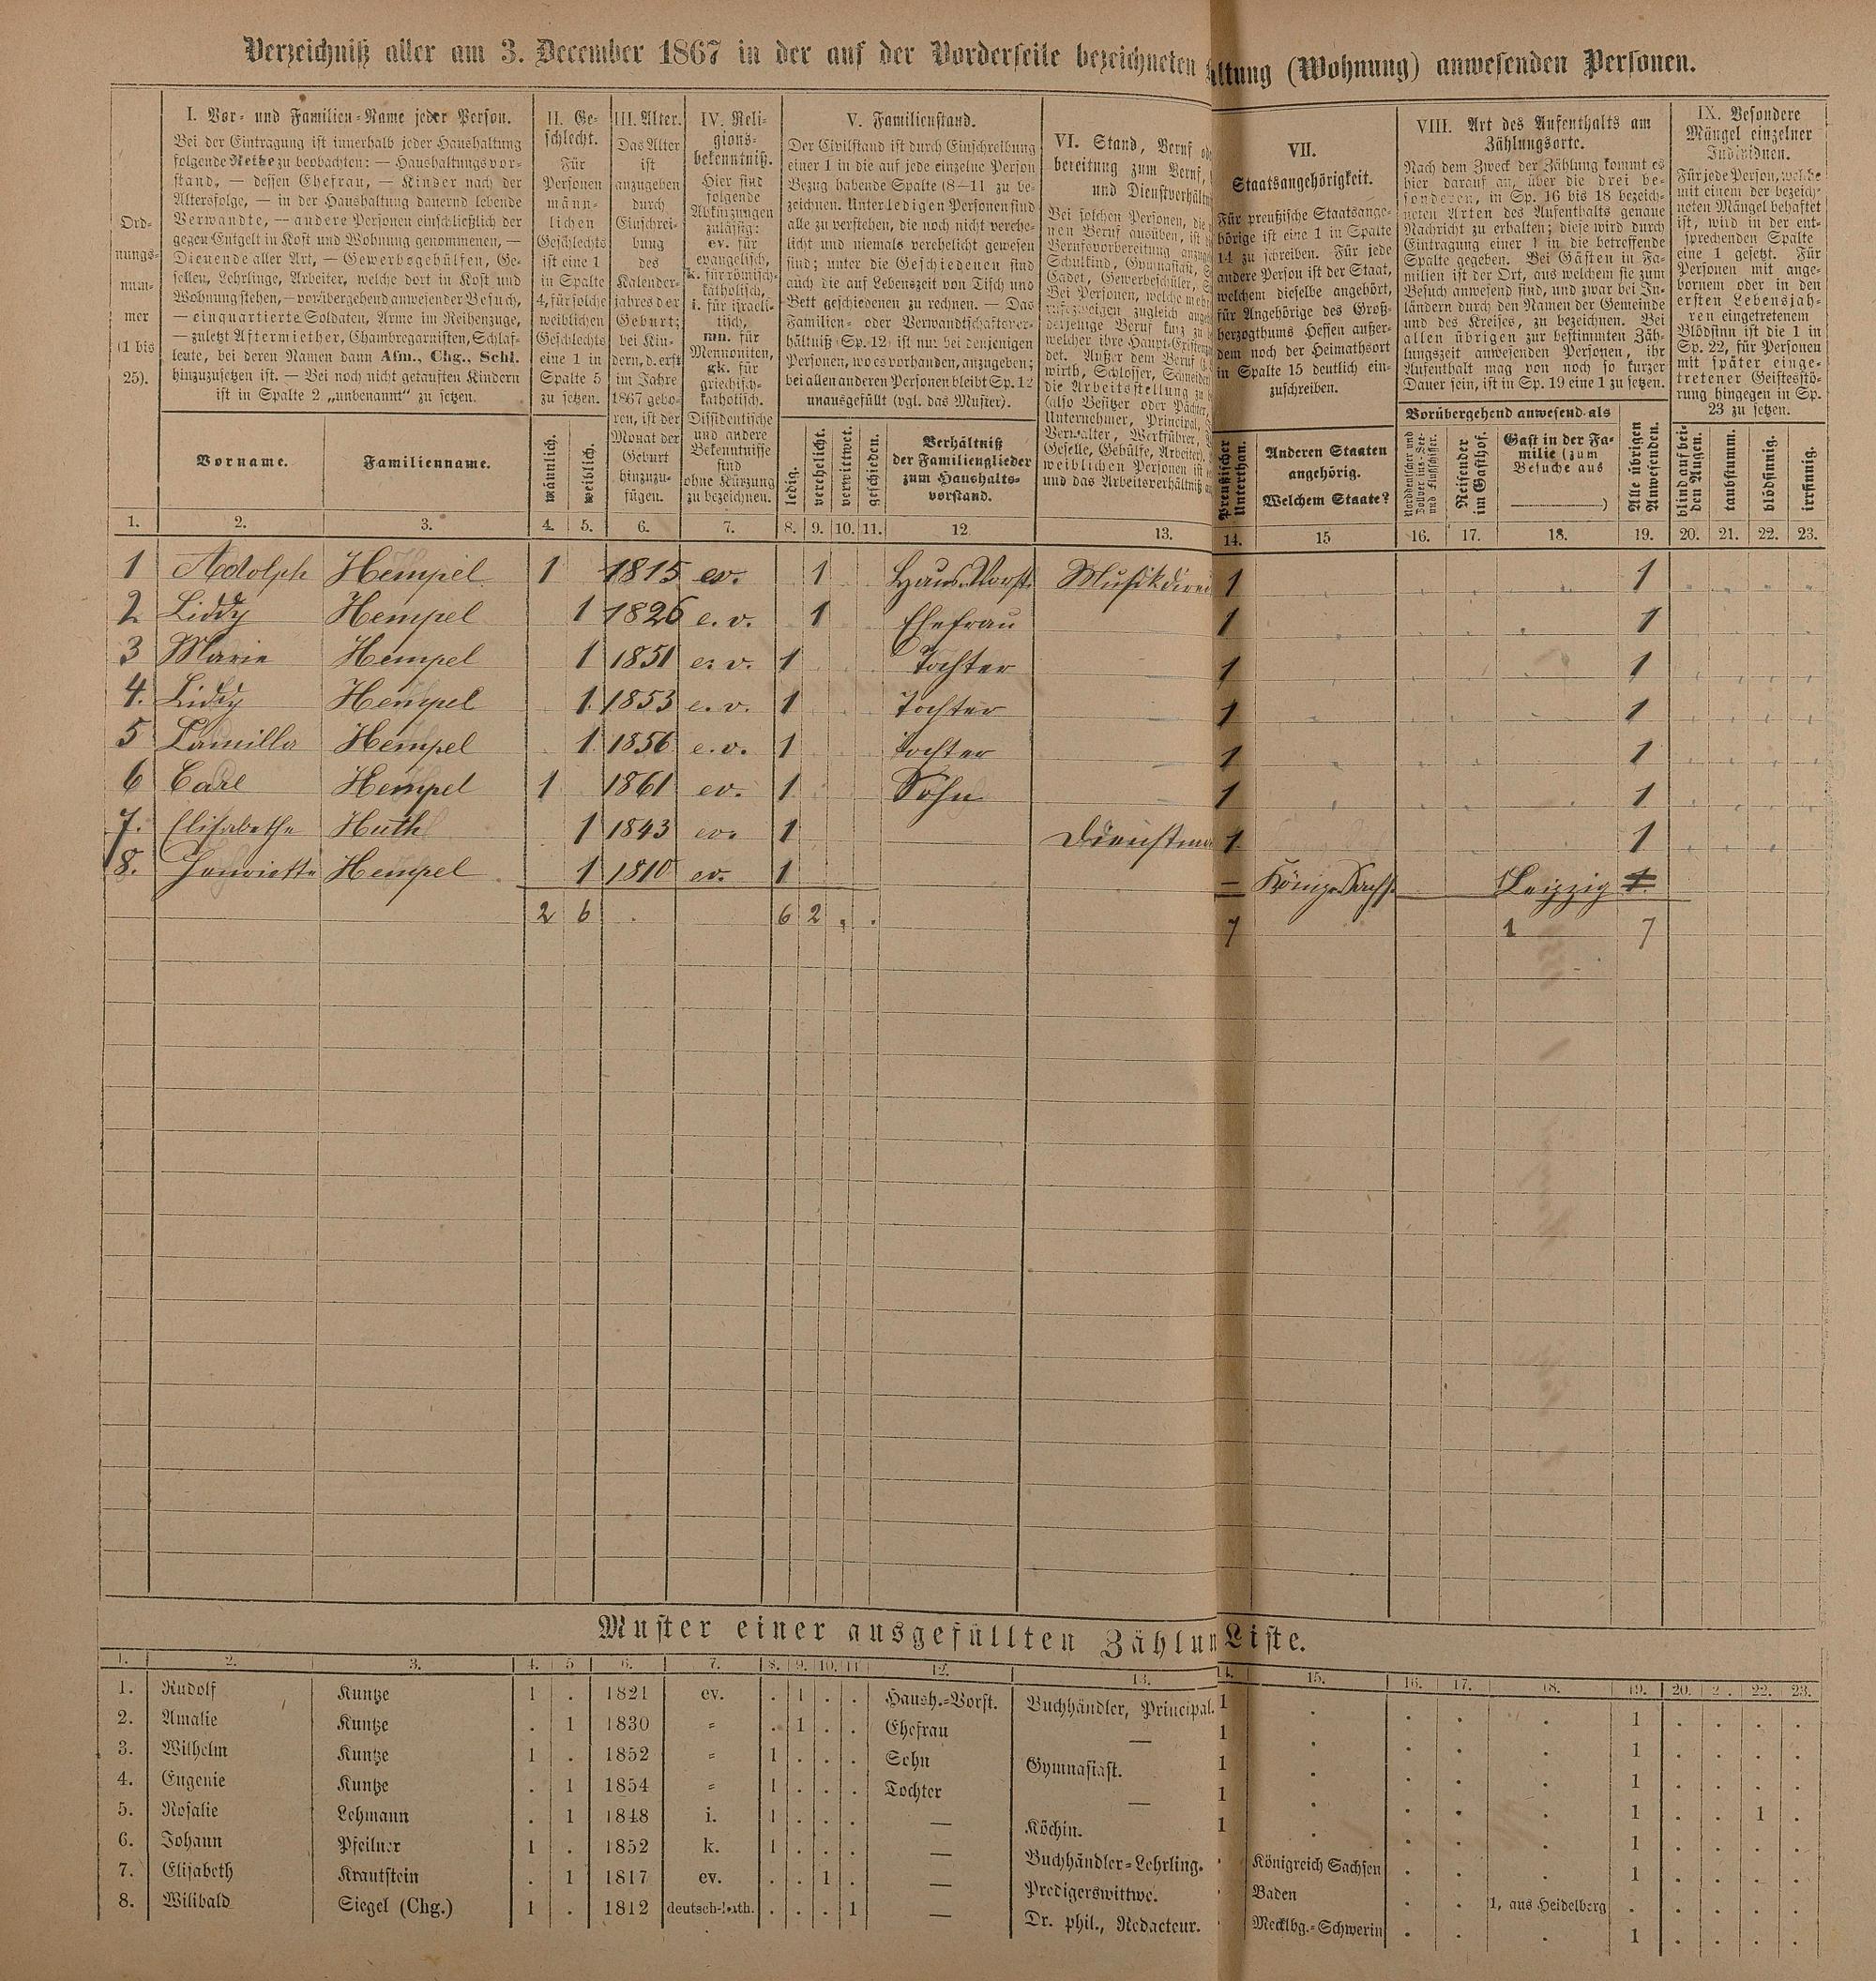 Verzeichniß aller am 3. December 1867 in der auf der Vorderseite bezeichneten ltung (Wohnung) anwesenden Personen.
Ord-
nungs-
num-
mer
(1 bis
25).
I. Vor- und Familien-Name jeder Person.
Bei der Eintragung ist innerhalb jeder Haushaltung
folgende Reihe zu beobachten: — Haushaltungsvor-
stand, — dessen Ehefrau, — Kinder nach der
Altersfolge, — in der Haushaltung dauernd lebende
Verwandte, — andere Personen einschließlich der
gegen Entgelt in Kost und Wohnung genommenen, —
Dienende aller Art, — Gewerbsgehülfen, Ge-
sellen, Lehrlinge, Arbeiter, welche dort in Kost und
Wohnung stehen, — vorübergehend anwesender Besuch,
— einquartierte Soldaten, Arme im Reihenzuge,
— zuletzt Aftermiether, Chambregarnisten, Schlaf-
leute, bei deren Namen dann Afm., Chg., Schl.
hinzuzusetzen ist. — Bei noch nicht getauften Kindern
ist in Spalte 2 „unbenannt“ zu setzen.
Vorname. Familienname.
II. Ge-
schlecht.
Für
Personen
männ-
lichen
Geschlechts
ist eine 1
in Spalte
4, für solche
weiblichen
Geschlechts
eine 1 in
Spalte 5
zu setzen.
männlich. weiblich.
III. Alter.
Das Alter
ist
anzugeben
durch
Einschrei-
bung
des
Kalender-
jahres der
Geburt;
bei Kin-
dern, d. erst
im Jahre
1867 gebo-
ren, ist der
Monat der
Geburt
hinzuzu-
fügen.
IV. Reli-
gions-
bekenntniß.
Hier sind
folgende
Abkürzungen
zulässig:
ev. für
evangelisch,
k. für römisch-
katholisch,
i. für israeli-
tisch,
mn. für
Mennoniten,
gk. für
griechisch-
katholisch.
Dissidentische
und andere
Bekenntnisse
sind
ohne Kürzung
zu bezeichnen.
V. Familienstand.
Der Civilstand ist durch Einschreibung
einer 1 in die auf jede einzelne Person
Bezug habende Spalte (8—11 zu be-
zeichnen. Unter ledigen Personen sind
alle zu verstehen, die noch nicht verehe-
licht und niemals verehelicht gewesen
sind; unter die Geschiedenen sind
auch die auf Lebenszeit von Tisch und
Bett geschiedenen zu rechnen. — Das
Familien- oder Verwandtschaftsver-
hältniß (Sp. 12) ist nur bei denjenigen
Personen, wo es vorhanden, anzugeben;
bei allen anderen Personen bleibt Sp. 12
unausgefüllt (vgl. das Muster).
ledig. verehelicht. verwittwet. geschieden.
Verhältniß
der Familienglieder
zum Haushalts-
vorstand.
VI. Stand, Beruf
bereitung zum Beruf,
und Dienstverhältn
Bei solchen Personen, die
nen Beruf ausüben, ist
Berufsvorbereitung
Schulkind, Gymnasiast,
Cadet, Gewerbeschüler,
Bei Personen, welche
rufszweigen zugleich
derjenige Beruf kurz zu
welcher ihre Haupt-Existenz
det. Außer dem Beruf
wirth, Schlosser, Schneider
die Arbeitsstellung zu
(also Besitzer oder Pächter,
Unternehmer, Principal,
Verwalter, Werkführer,
Geselle, Gehülfe, Arbeiter).
weiblichen Personen ist
und das Arbeitsverhältniß
VII.
Staatsangehörigkeit.
Für preußische Staatsange-
hörige ist eine 1 in Spalte
14 zu schreiben. Für jede
andere Person ist der Staat,
welchem dieselbe angehört,
für Angehörige des Groß-
herzogthums Hessen außer-
dem noch der Heimathsort
in Spalte 15 deutlich ein-
zuschreiben.
Preußischer
Unterthan.
Anderen Staaten
angehörig.
Welchem Staate?
VIII. Art des Aufenthalts am
Zählungsorte.
Nach dem Zweck der Zählung kommt es
hier darauf an, über die drei be-
sonderen, in Sp. 16 bis 18 bezeich-
neten Arten des Aufenthalts genaue
Nachricht zu erhalten; diese wird durch
Eintragung einer 1 in die betreffende
Spalte gegeben. Bei Gästen in Fa-
milien ist der Ort, aus welchem sie zum
Besuch anwesend sind, und zwar bei In-
ländern durch den Namen der Gemeinde
und des Kreises, zu bezeichnen. Bei
allen übrigen zur bestimmten Zäh-
lungszeit anwesenden Personen, ihr
Aufenthalt mag von noch so kurzer
Dauer sein, ist in Sp. 19 eine 1 zu setzen.
Vorübergehend anwesend als
Reisender
im Gasthof.
Gast in der Fa-
milie (zum
Besuche aus
)
Alle übrigen
Anwesenden.
IX. Besondere
Mängel einzelner
Individuen.
Für jede Person, welche
mit einem der bezeich-
neten Mängel behaftet
ist, wird in der ent-
sprechenden Spalte
eine 1 gesetzt. Für
Personen mit ange-
bornem oder in den
ersten Lebensjah-
ren eingetretenem
Blödsinn ist die 1 in
Sp. 22, für Personen
mit später einge-
tretener Geistesstö-
rung hingegen in Sp.
23 zu setzen.
blind auf bei-
den Augen.
taubstumm.
blödsinnig.
irrsinnig.
1. 2. 3. 4. 5. 6. 7. 8. 9. 10. 11. 12 13. 14. 15 16. 17. 18. 19. 20. 21. 22. 23.
1 Adolph Hempel 1 1815 ev. 1 Haus.Vorst. Musikdirec 1 1
2 Liddy Hempel 1 1826 e. v. 1 Ehefrau 1 1
3 Marie Hempel 1 1851 e. v. 1 Tochter 1 1
4. Liddy Hempel 1 1853 e. v. 1 Tochter 1 1
5 Camilla Hempel 1 1856 e. v. 1 Tochter 1 1
6 Carl Hempel 1 1861 ev. 1 Sohn 1 1
7. Elisabethe Huth 1 1843 ev. 1 Dienstma 1 1
8. Henriette Hempel 1 1810 ev. 1 – König. Sachs. Leipzig 1
2 6 . 6 2 . . 7 1 7
Muster einer ausgefüllten Zählun Liste.
1. 2. 3. 4. 5 6. 7. 8. 9. 10. 11 12. 13. 14. 15. 16. 17. 18. 19. 20. 2. 22. 23.
1. Rudolf Kuntze 1 . 1821 ev. . 1 . . Haush.-Vorst. Buchhändler, Principal. 1 . . . . 1 . . . .
2. Amalie Kuntze . 1 1830 „ . 1 . . Ehefrau — 1 . . . . 1 . . . .
3. Wilhelm Kuntze 1 . 1852 „ 1 . . . Sohn Gymnasiast. 1 . . . . 1 . . . .
4. Eugenie Kuntze . 1 1854 „ 1 . . . Tochter — 1 . . . . 1 . . 1 .
5. Rosalie Lehmann . 1 1848 i. 1 . . . — Köchin. 1 . . . . 1 . . . .
6. Johann Pfeilner 1 . 1852 k. 1 . . . — Buchhändler-Lehrling. . Königreich Sachsen . . . 1 . . . .
7. Elisabeth Krautstein . 1 1817 ev. . . 1 . — Predigerswittwe. . Baden . . 1, aus Heidelberg . . . . .
8. Wilibald Siegel (Chg.) 1 . 1812 deutsch-kath. . . . 1 — Dr. phil., Redacteur. . Mecklbg.-Schwerin . . . 1 . . . .